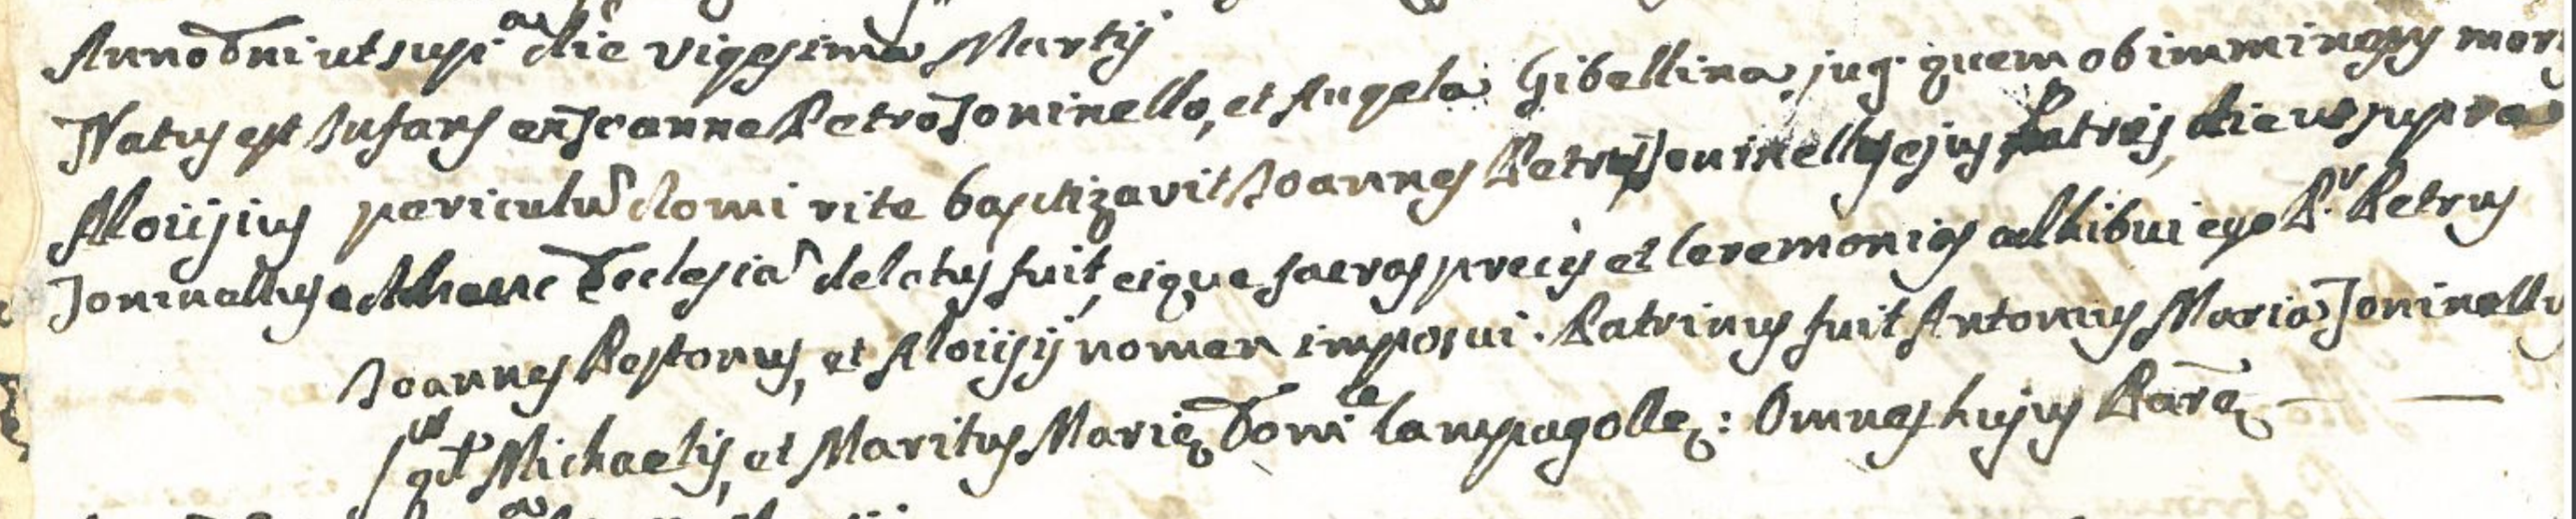 Anno Dni ut supra die vigesima Martij
Natus est Infans ex Joanne Petro Joninello, et Angela Gibellina jug. quem ob imminens mor
Aloiisius periculu domi rite baptizavit Joannes Petrus Joninellus ejus Patris, die ut supra
Joninellus ad hanc Ecclesia delatus fuit, eique sacras preces et Ceremonias adhibui ego Pr. Petrus
Joannes Restonus, et Aloiisij nomen imposui. Patrinus fuit Antonius Maria Joninellu
qt Michaelis, et Maritus Marie Domce Campagolle: Omnes hujus Parae